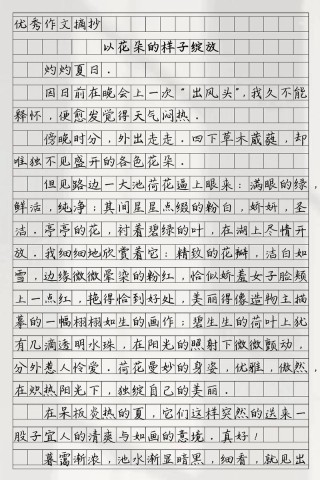 优秀作文摘抄
以花朵的样子绽放
灼灼夏日.
因日前在晚会上一次“出风头”,我久不能
释怀,便愈发觉得天气闷热.
傍晚时分,外出走走.四下草木葳蕤,却
唯独不见盛开的各色花朵.
但见路边一大池荷花逼上眼来:满眼的绿,
鲜活,纯净;其间星星点缀的粉白,娇妍,圣
洁.亭亭的花,衬着碧绿的叶,在湖上尽情开
放.我细细地欣赏着它:精致的花瓣,洁白如
雪.边缘微微晕染的粉红,恰似娇羞女子脸颊
上一点红,拖得恰到好处,美丽得像造物主描
摹的一幅栩栩如生的画作;碧生生的荷叶上犹
有几滴透明水珠,在阳光的照射下微微颤动,
分外惹人怜爱.荷花曼妙的身姿,优雅,傲然,
在炽热阳光下,独绽自己的美丽.
在呆板炎热的夏,它们这样突然的送来一
股子宜人的清爽与如画的意境.真好!
暮霭渐浓,池水渐显暗黑,细看,就见出